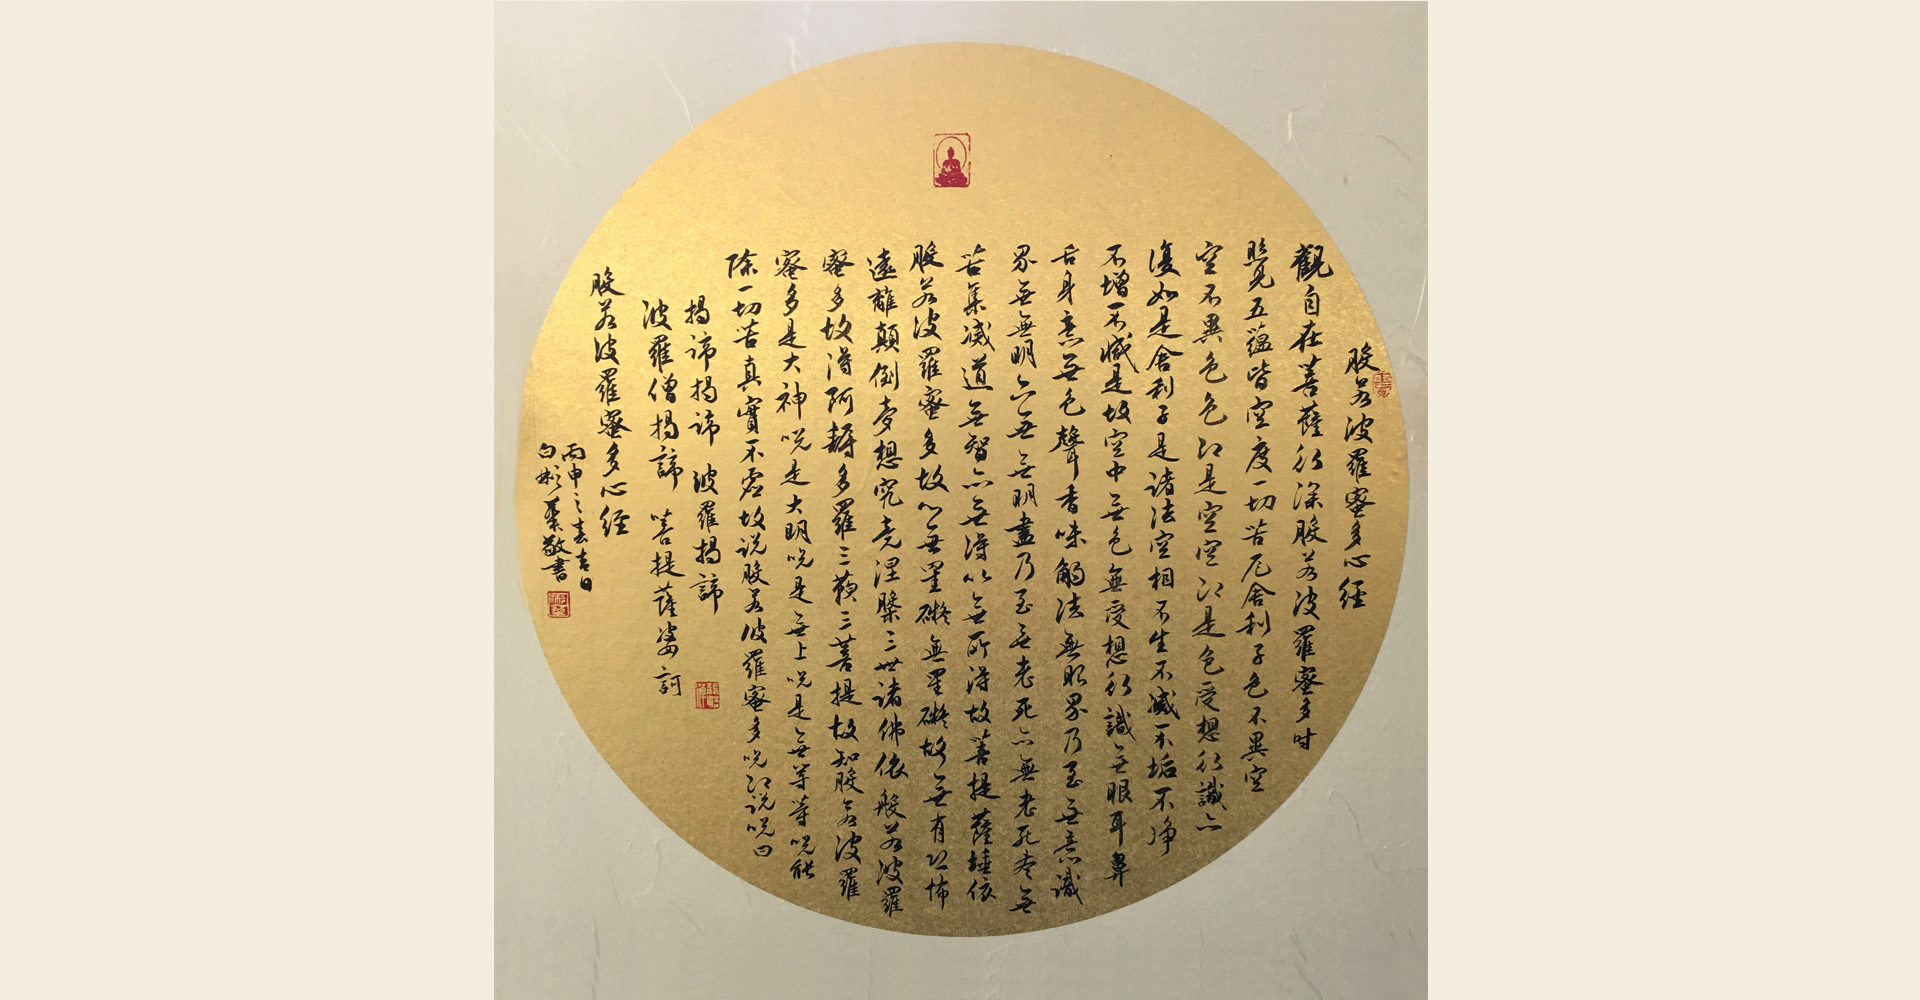 般若波羅蜜多心經
觀自在菩薩行深般若波羅蜜多时
照見五蘊皆空度一切苦厄舍利子色不異空
空不異色色即是空空即是色受想行識亦
復如是舍利子是諸法空相不生不滅不垢不净
不增不减是故空中無色無受想行識無眼耳鼻
舌身意無色聲香味觸法無眼界乃至無意識
界無無明亦无無明盡乃至無老死亦無老死尽無
苦集滅道無智亦無得以無所得故菩提薩埵依
般若波羅蜜多故心無罣礙無罣礙故無有恐怖
遠離顛倒夢想究竟涅槃三世諸佛依般若波羅
蜜多故得阿耨多羅三藐三菩提故知般若波羅
蜜多是大神咒是大明咒是無上咒是無等等咒能
除一切苦真實不虛故説般若波羅蜜多咒即説咒曰
揭諦揭諦 波羅揭諦
波羅僧揭諦 菩提薩婆訶
般若波羅蜜多心經
丙申之春吉日
白彬敬書